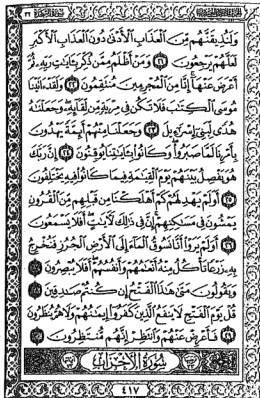 وَلَنُذِيقَنَّهُم مِّنَ ٱلْعَذَابِ ٱلْأَدْنَىٰ دُونَ ٱلْعَذَابِ ٱلْأَكْبَرِ
لَعَلَّهُمْ يَرْجِعُونَ ٢١ وَمَنْ أَظْلَمُ مِمَّن ذُكِّرَ بِـَٔايَٰتِ رَبِّهِۦ ثُمَّ
أَعْرَضَ عَنْهَآ إِنَّا مِنَ ٱلْمُجْرِمِينَ مُنتَقِمُونَ ٢٢ وَلَقَدْ ءَاتَيْنَا
مُوسَى ٱلْكِتَٰبَ فَلَا تَكُن فِى مِرْيَةٍ مِّن لِّقَآئِهِۦ وَجَعَلْنَٰهُ
هُدًى لِّبَنِىٓ إِسْرَٰٓءِيلَ ٢٣ وَجَعَلْنَا مِنْهُمْ أَئِمَّةً يَهْدُونَ
بِأَمْرِنَا لَمَّا صَبَرُوا۟ وَكَانُوا۟ بِـَٔايَٰتِنَا يُوقِنُونَ ٢٤ إِنَّ رَبَّكَ
هُوَ يَفْصِلُ بَيْنَهُمْ يَوْمَ ٱلْقِيَٰمَةِ فِيمَا كَانُوا۟ فِيهِ يَخْتَلِفُونَ
٢٥ أَوَلَمْ يَهْدِ لَهُمْ كَمْ أَهْلَكْنَا مِن قَبْلِهِم مِّنَ ٱلْقُرُونِ
يَمْشُونَ فِى مَسَٰكِنِهِمْ إِنَّ فِى ذَٰلِكَ لَـَٔايَٰتٍ أَفَلَا يَسْمَعُونَ
٢٦ أَوَلَمْ يَرَوْا۟ أَنَّا نَسُوقُ ٱلْمَآءَ إِلَى ٱلْأَرْضِ ٱلْجُرُزِ فَنُخْرِجُ
بِهِۦ زَرْعًا تَأْكُلُ مِنْهُ أَنْعَٰمُهُمْ وَأَنفُسُهُمْ أَفَلَا يُبْصِرُونَ ٢٧
وَيَقُولُونَ مَتَىٰ هَٰذَا ٱلْفَتْحُ إِن كُنتُمْ صَٰدِقِينَ ٢٨
قُلْ يَوْمَ ٱلْفَتْحِ لَا يَنفَعُ ٱلَّذِينَ كَفَرُوٓا۟ إِيمَٰنُهُمْ وَلَا هُمْ يُنظَرُونَ
٢٩ فَأَعْرِضْ عَنْهُمْ وَٱنتَظِرْ إِنَّهُم مُّنتَظِرُونَ ٣٠
سُورَةُ الْأَحْزَابِ
٤١٧